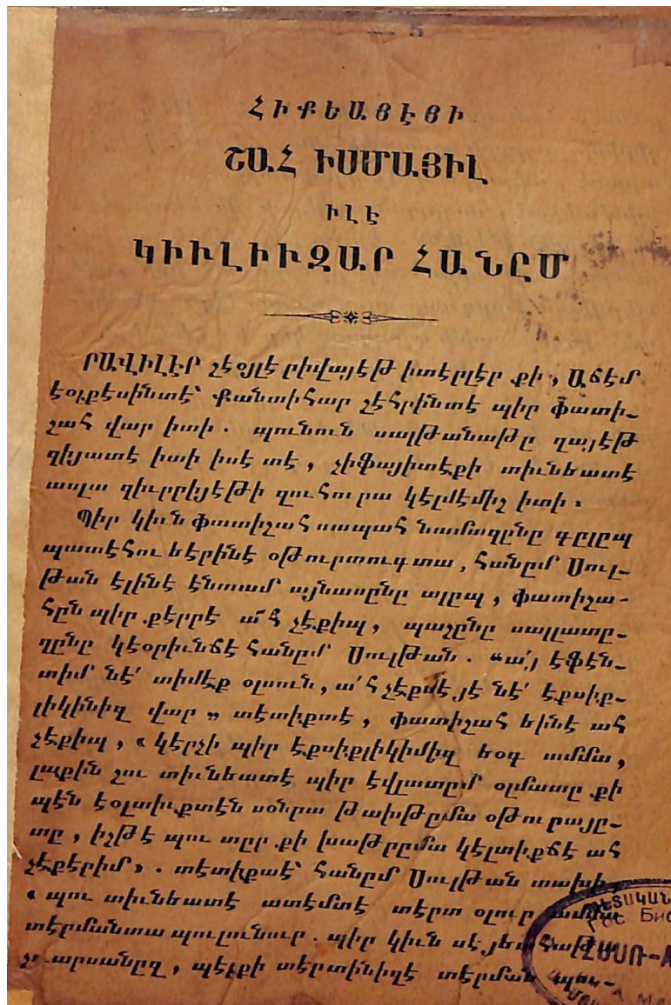 — 5
ՀԻՔԵԱՅԷՅԻ
ՇԱՀ ԻՍՄԱՅԻԼ
ԻԼԷ
ԿԻՒԼԻՒԶԱՐ ՀԱՆԸՄ
ՐԱՎԻԼԷՐ շէօյլէ րիվայէթ իտէրլէր քի, Աճէմ
էօլքէսինտէ՝ Քանտիհար շէհրինտէ պիր փատի-
շահ վար իտի. պունուն սալթանաթը ղայէթ
զիյատէ իտի իսէ տէ, չիֆայիտէքի տիւնեատէ
ասլա զիւրրիյէթի զուհուրա կէլմէմիշ իտի։
Պիր կիւն փատիշահ սապահ նամազընը գըլըպ
պատէհու եէրինէ օթուրտուգտա, հանըմ Սուլ-
թան էլինէ էնտամ այնասընը ալըպ, փատիշա-
հըն պիր քէրրէ ա՛հ չէքիպ, պաշընը սալլատը-
ղընը կէօրիւնճէ հանըմ Սուլթան. “ա՛յ էֆէն-
տիմ նէ՛ տիմէք օլսուն, ա՛հ չէքմէյէ նէ՛ էքսիք-
լիկինիզ վար„ տէտիքտէ, փատիշահ եինէ ահ
չէքիպ, «կէրչի պիր էքսիքլիկիմիզ եօգ ամմա,
լաքին շու տիւնեատէ պիր էվլատըմ օլմատը քի
պէն էօլտիւքտէն սօնրա թախթըմա օթուրայը-
տը, իշթէ պու տըր քի խաթըըմա կէլտիքճէ ահ
չէքէրիմ». տէտիքաէ՝ հանըմ Սուլթան տախի
«պու տիւնեատէ ատէմտէ տէրտ օլուր ամմա
տէրմանտա պուլունուր. պիր կիւն սէյեահաթա
չըարսանըզ, պէլքի տէրտինիզէ տէրման պու-